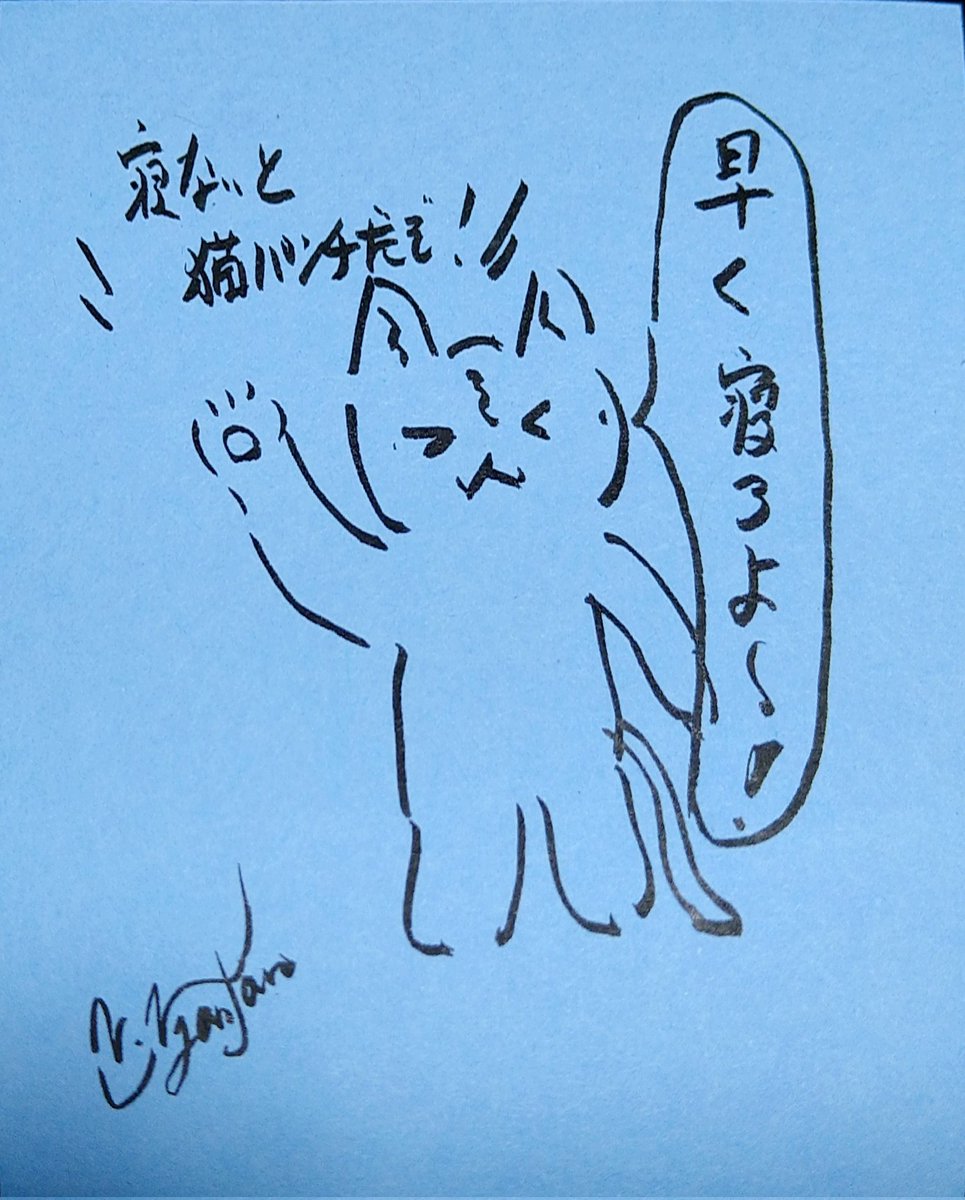 寝ないと
猫パンチだぞ!!
早く寝るよ〜!
N. Nyantaro